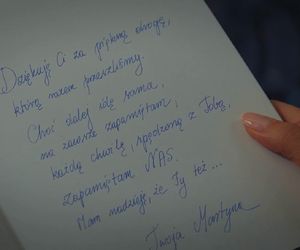 Dziękuję Ci za piękną drogę,
którą razem przeszliśmy.
Choć dalej idę sama,
na zawsze zapamiętam,
każdą chwilę, spędzoną z Tobą,
Zapamiętam NAS.
Mam nadzieję, że Ty też...
Twoja Martyna